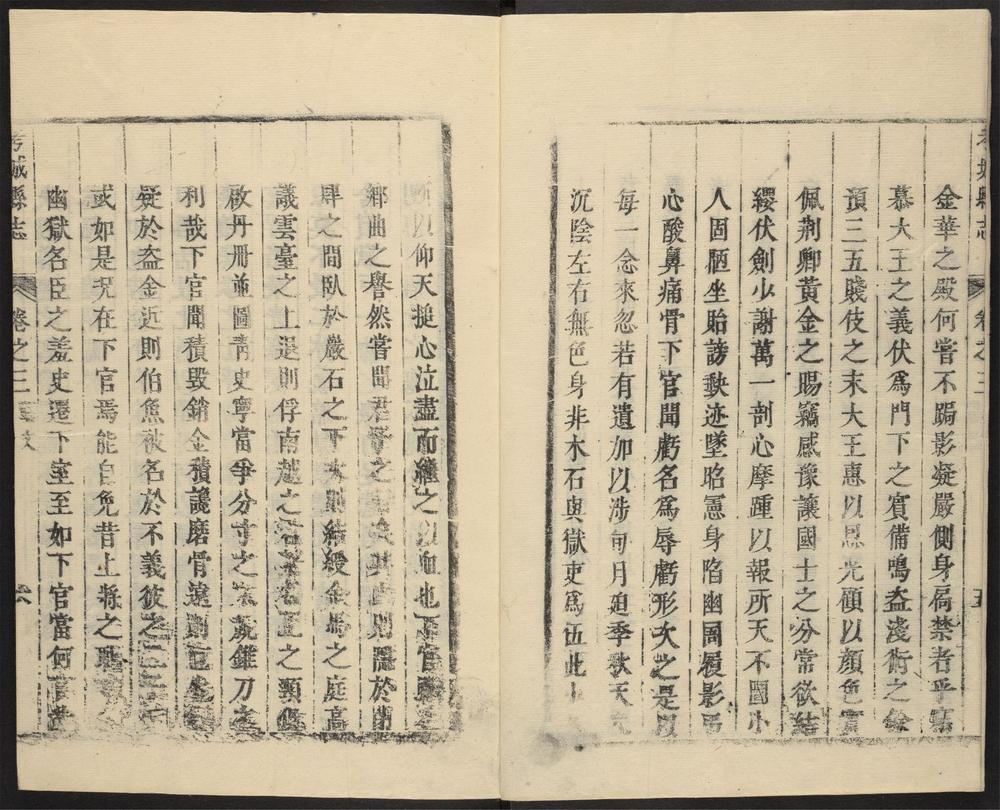 考城縣志 卷之三 五
金華之殿何嘗不跼影凝嚴側身扃禁者乎竊
慕大王之義伏爲門下之賓備鳴盜淺術之餘
預三五賤伎之末大王惠以恩光顧以顏色實
佩荆卿黃金之賜竊感豫讓國士之分常欲結
纓伏劍少謝萬一剖心摩踵以報所天不圖小
人固陋坐貽謗缺迹墜昭憲身陷幽圄履影弔
心酸鼻痛骨下官聞虧名爲辱虧形次之是以
每一念來忽若有遺加以涉旬月迫季秋天光
沉陰左右無色身非木石與獄吏爲伍此
所以仰天搥心泣盡而繼之以血也下官雖
鄉曲之譽然嘗聞君子之行矣其上則隱於
肆之間臥於巖石之下次則結綬金馬之庭高
議雲臺之上退則俘南越之君 之頸俱
啟丹册並圖靑史寧當爭分寸之末競錐刀之
利哉下官聞積毀銷金積讒磨骨遠則
疑於盜金近則伯魚被名於不義彼之二
或如是况在下官焉能自免昔上將之恥
幽獄名臣之羞史遷下室至如下官當何言哉
考城縣志 卷之三 六